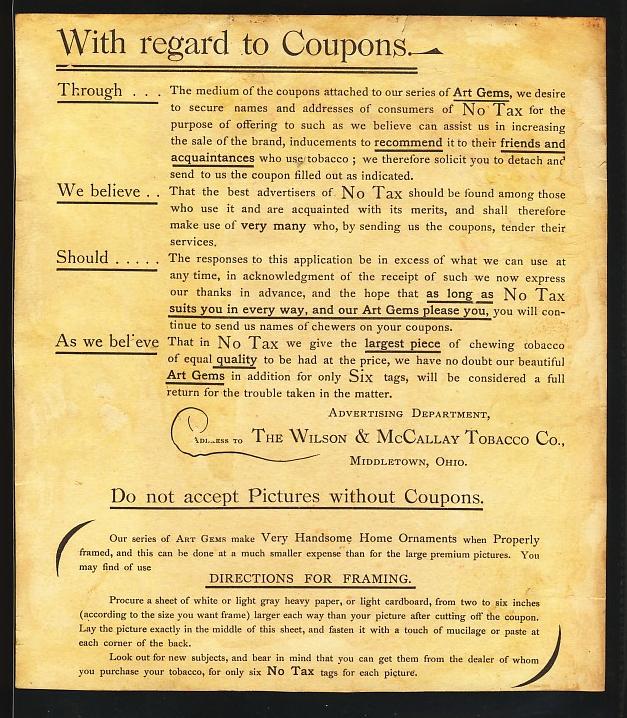 With regard to Coupons.
Through . . . The medium of the coupons attached to our series of Art Gems, we desire
to secure names and addresses of consumers of No Tax for the
purpose of offering to such as we believe can assist us in increasing
the sale of the brand, inducements to recommend it to their friends and
acquaintances who use tobacco ; we therefore solicit you to detach and
send to us the coupon filled out as indicated.
We believe . . That the best advertisers of No Tax should be found among those
who use it and are acquainted with its merits, and shall therefore
make use of very many who, by sending us the coupons, tender their
services.
Should . . . . . The responses to this application be in excess of what we can use at
any time, in acknowledgment of the receipt of such we now express
our thanks in advance, and the hope that as long as No Tax
suits you in every way, and our Art Gems please you, you will con-
tinue to send us names of chewers on your coupons.
As we believe That in No Tax we give the largest piece of chewing tobacco
of equal quality to be had at the price, we have no doubt our beautiful
Art Gems in addition for only Six tags, will be considered a full
return for the trouble taken in the matter.
Advertising Department,
Address to The Wilson & McCallay Tobacco Co.,
Middletown, Ohio.
Do not accept Pictures without Coupons.
Our series of Art Gems make Very Handsome Home Ornaments when Properly
framed, and this can be done at a much smaller expense than for the large premium pictures. You
may find of use
DIRECTIONS FOR FRAMING.
Procure a sheet of white or light gray heavy paper, or light cardboard, from two to six inches
(according to the size you want frame) larger each way than your picture after cutting off the coupon.
Lay the picture exactly in the middle of this sheet, and fasten it with a touch of mucilage or paste at
each corner of the back.
Look out for new subjects, and bear in mind that you can get them from the dealer of whom
you purchase your tobacco, for only six No Tax tags for each picture.